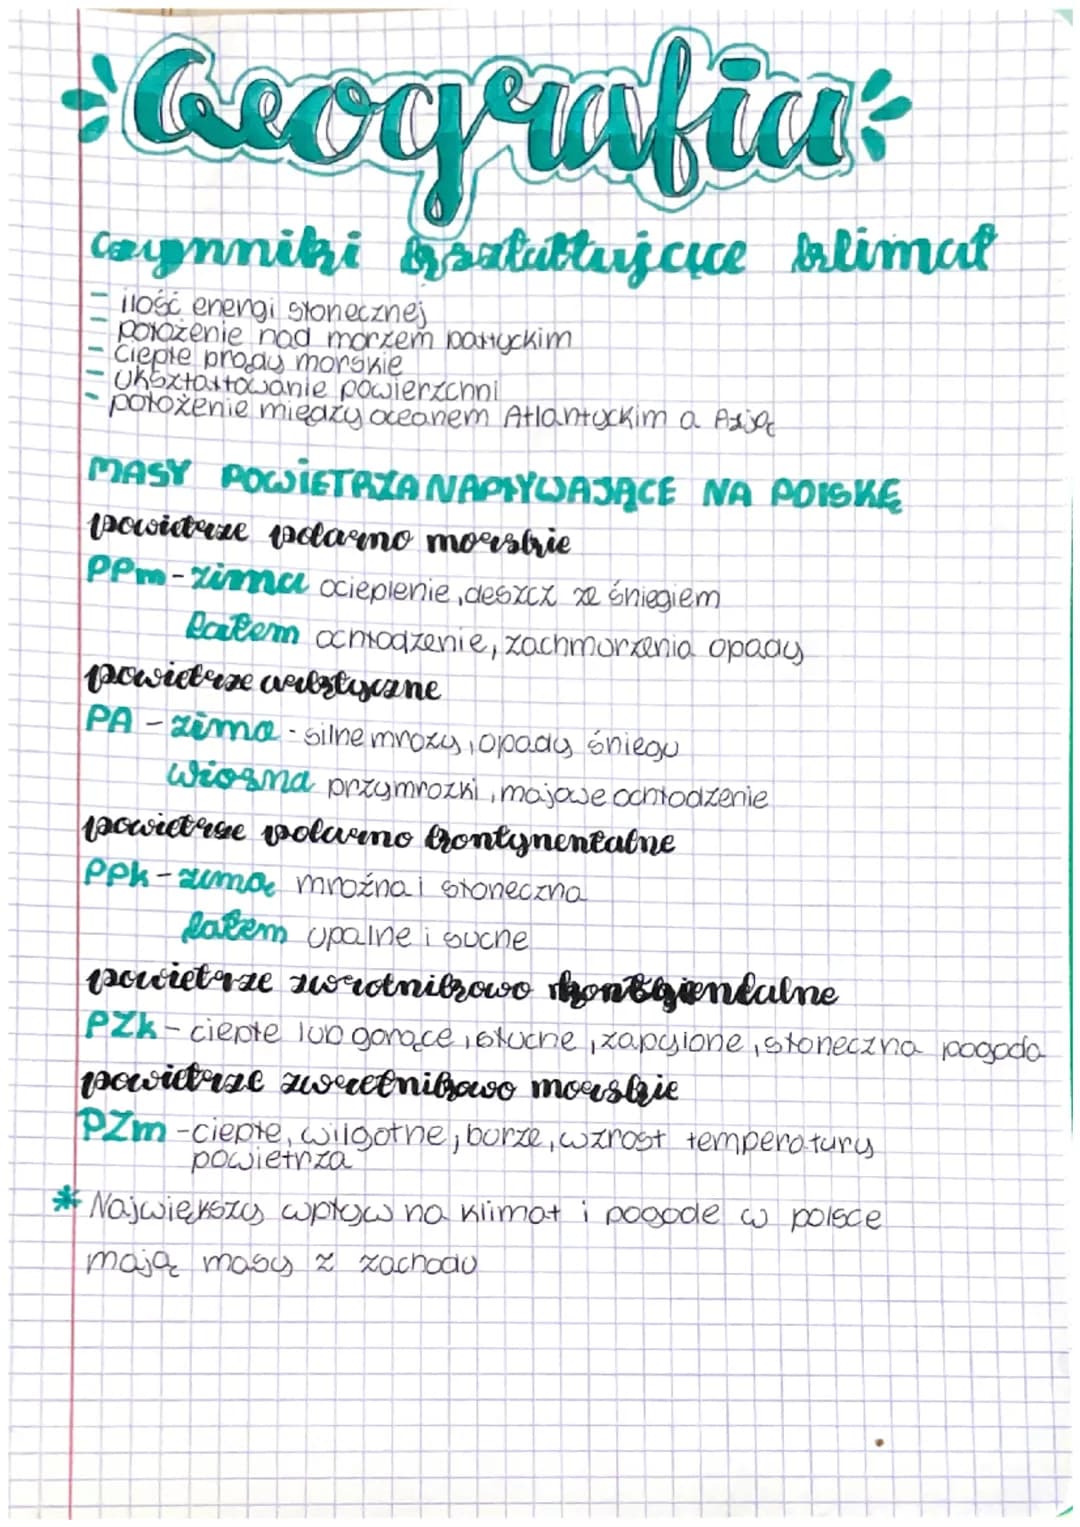 Geografia
Czynniki kształtujące klimat
- ilość energi słonecznej
- położenie nad morzem bałtyckim
- Ciepłe prądy morskie
- Ukształtowanie powierzchni
- położenie między oceanem Atlantyckim a Azją
MASY POWIETRZA NAPŁYWAJĄCE NA POLSKĘ
powietrze polarno morskie
PPm - zima ocieplenie, deszcz ze śniegiem
latem ochłodzenie, zachmurzenia opady
powietrze arktyczne
PA - zima - silne mrozy, opady śniegu
wiosna przymrozki, majowe ochłodzenie
powietrze polarno kontynentalne
PPk - zimą mroźna i słoneczna
latem upalne i suche
powietrze zwrotnikowo
PZk - ciepłe lub gorące, stuche, zapylone, słoneczna pogoda
powietrze zwrotnikowo morskie
PZm - ciepłe, wilgotne, burze, wzrost temperatury
powietrza
* Największy wpływ na klimat i pogode w polsce
mają masy z zachodu